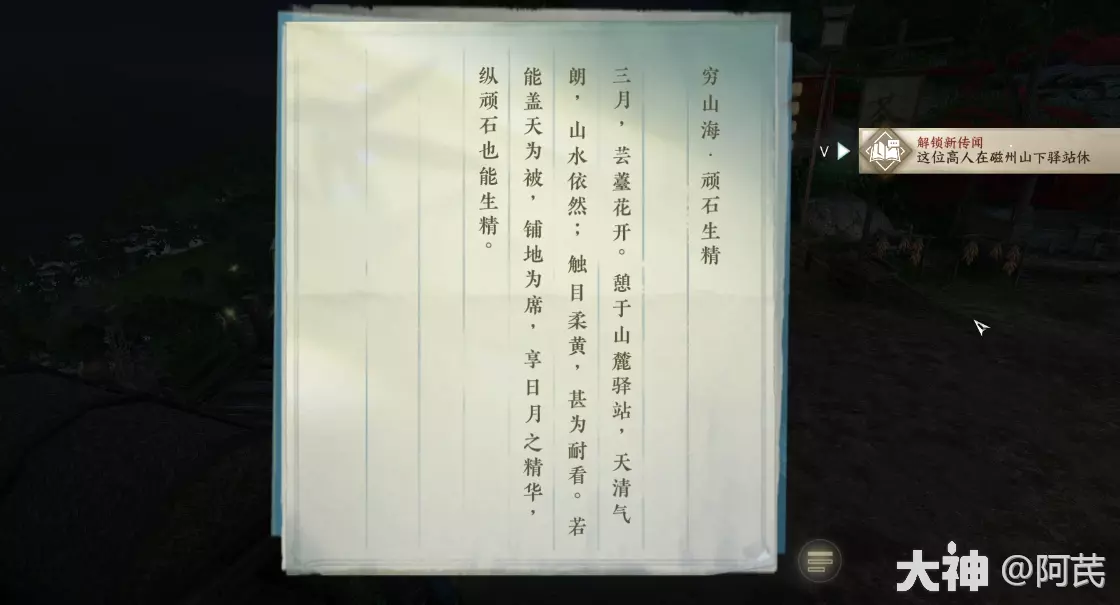 穷山海·顽石生精
三月，芸薹花开。憩于山麓驿站，天清气
朗，山水依然；触目柔黄，甚为耐看。若
能盖天为被，铺地为席，享日月之精华，
纵顽石也能生精。
V
解锁新传闻
这位高人在磁州山下驿站休
大神 @阿芪